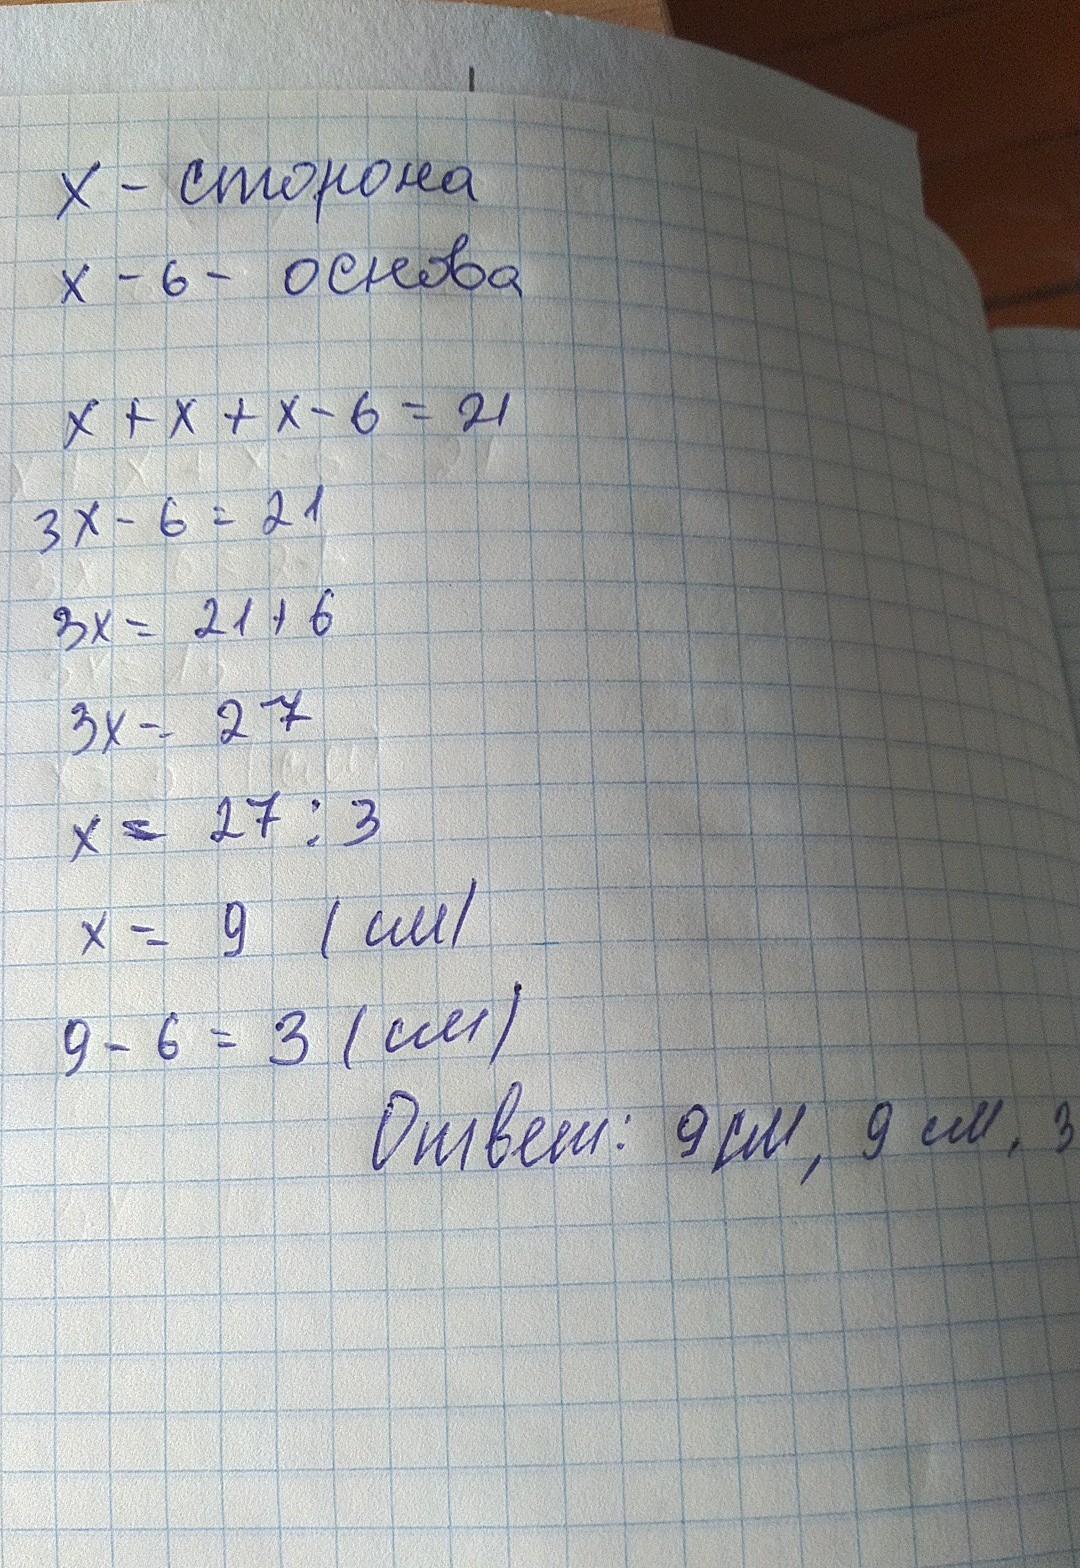 x - сторона
x - 6 - основа
x + x + x - 6 = 21
3x - 6 = 21
3x = 21 + 6
3x = 27
x = 27 : 3
x = 9 (см)
9 - 6 = 3 (см)
Ответ: 9 см, 9 см, 3